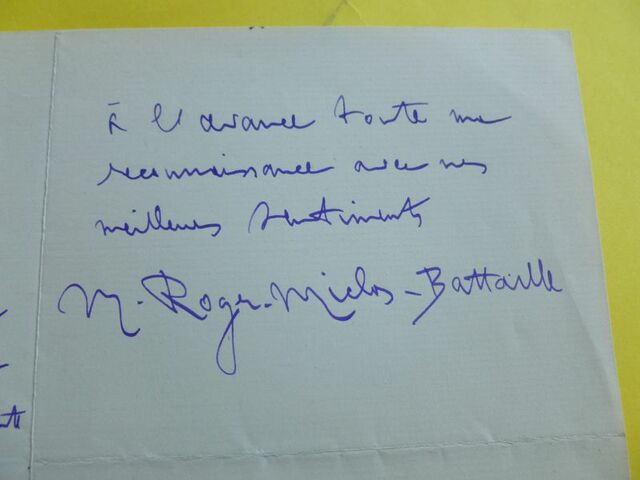 à l'avance toute ma
reconnaissance avec mes
meilleurs sentiments
M. Roger-Miclos-Battaille